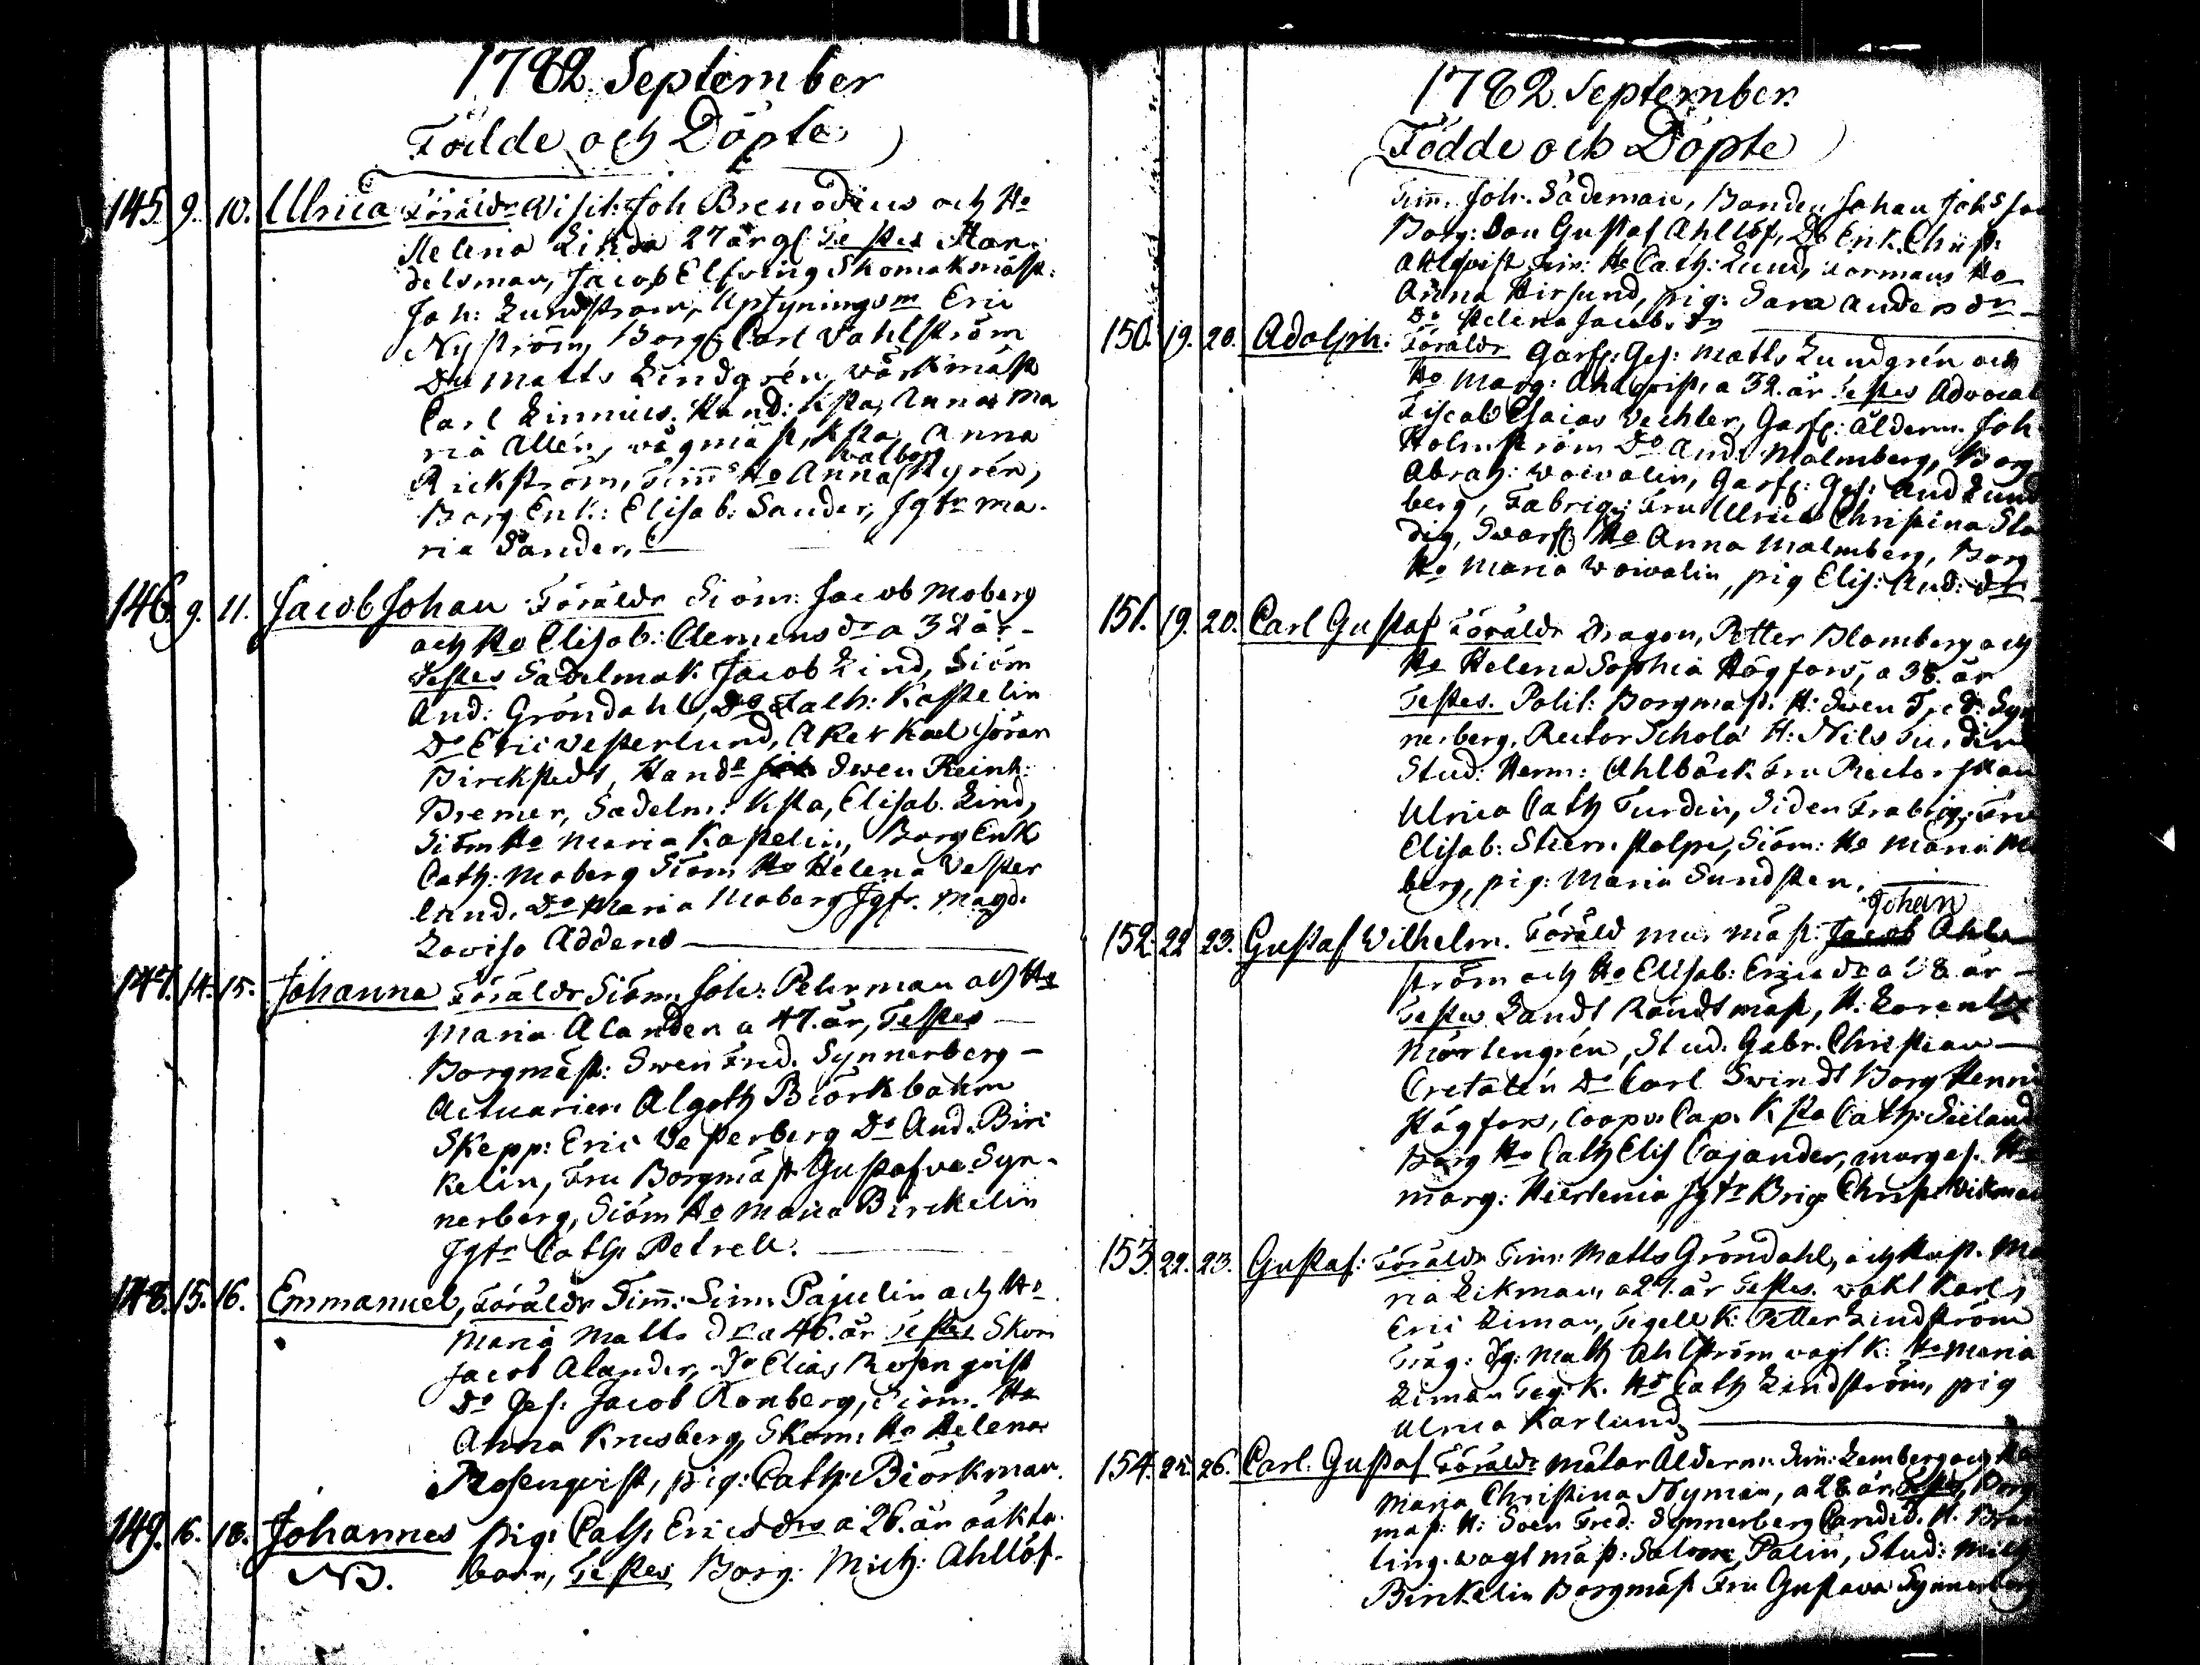 1782. September
Födde och Döpte
145. 9. 10. Ulrica Föräldr Visit: Joh Brenodius och Ho
Helena Linda 27 år gl Testes Han-
delsman, Jacob Elfving Skomakmäst:
Joh: Lundström, Uptyningsm Eric
Nyström, Borg: Carl Vahlström
Do Matts Lindgrén, värkmäst
Carl Linnius. Hand: Hsta, Anna Ma
ria Allén, vågmäst, Hsta Anna
Rickström, Timm Ho Anna Walborg Nyrén,
Borg Enk: Elisab: Sander, Jgfr Ma-
ria Sander.
146. 9. 11. Jacob Johan Föräldr Siöm: Jacob Moberg
och Ho Elisab: Clemens dr a 32 år-
Testes Sadelmak. Jacob Lind, Siöm
And: Gröndahl, Do Zach: Kastelin
Do Eric Vesterlund, Åker Karl Jöran
Birckstedt, Hand Swen Reinh:
Bremer, Sadelm: Hsta, Elisab. Lind,
Siöm Ho Maria Kastelin, Borg Enk
Cath: Moberg Siöm Ho Helena Vester
lund. Do Maria Moberg Jgfr. Magd.
Lovisa Addens
147. 14. 15. Johanna Föräldr Siöm: Joh: Pehrman och Ho
Maria Alander a 47. år, Testes
Borgmäst: Swen Fred. Synnerberg-
Actuarien Algoth Biörkbohm
Skepp: Eric Vesterberg Do And. Birc
kelin, Fru Borgmäst Gustafva Syn-
nerberg, Siöm Ho Maria Birckelin
Jgfr Cath: Petrell.
148. 15. 16. Emmanuel, Föräldr Timm: Sim: Pajulin och Ho
Maria Matts dr a 46. år Testes Skom
Jacob Alander, Do Elias Rosenqvist
Do Ges: Jacob Ronberg, Siöm. Ho
Anna Krusberg, Skom: Ho Helena
Rosenqvist, pig: Cath: Biörkman.
149. 16. 18. Johannes pig: Cath: Erics dr a 26. år oäkta
NB. barn, Testes Borg: Mich: Ahllöf.
1782. September.
Födde och Döpte
Timm. Joh. Sådeman, Bonden Johan Johsso
Borg: Son Gustaf Ahllöf, Do Erik. Christ:
Ahlqvist Ho Cath: Lund, Ho
Anna Hirsund, pig: Sara Anders dr
Do Helena Jacobs dr
150. 19. 20. Adolph. Föräldr Garf: Ges: Matts Lundgrén och
Ho Marg: Ahlqvist, a 32. år Testes Advocat
Fiscal Esaias Vechter, Garf: Ålderm. Joh
Holmström Do And: Malmberg, Borg
Abrah: Woivalin, Garf: Ges: And Lund
berg, Fabriq: Fru Ulrica Christina Sta
dig, Swarf Ho Anna Malmberg, Borg
Ho Maria Woivalin, pig Elis: And: dr
151. 19. 20. Carl Gustaf Föräldr Dragon, Petter Blomberg och
Ho Helena Sophia Högfors, a 38. år
Testes. Polit: Borgmäst. H: Swen Fred: Syn
nerberg, Rector Schola H: Nils Turdin
Stud: Herm: Ahlbäck Fru Rector skan
Ulrica Cath Turdin, Siden Frabriq: Fru
Elisab: Stiernstolpe, Siöm: Ho Maria M
berg, pig: Maria Sundsten.
152. 22 23. Gustaf Wilhelm. Föräld mur mäst: Jacob Johan Ahl
ström och Ho Elisab: Erics dr a 28 år
Testes Landt Rändtmäst, H: Lorentz
Mårtengrén, Stud. Gabr. Christian
Cretalén Do Carl Swindt Borg Henri
Högfors, Coopv: Cap. Hsta Cath: Sieland
Borg Ho Cath Elis Cajander, murges. Ho
Marg: Hertenia Jgfr Brig Christ: Wikman
153. 22. 23. Gustaf: Föräldr Tim: Matts Gröndahl, och Hust. Ma
ria Ekman, a 27. år Testes. vakt Karl,
Eric Ziman, Tegell K: Petter Lindström
Träg: dg: Math Ahlström vagt K: Ho Maria
Ziman Teg: K. Ho Cath Lindström, pig
Ulrica Karlund
154. 25. 26. Carl. Gustaf Föräldr Målar Alderm: Sim: Lemberg och Ho
Maria Christina Nyman, a 28 år, Testes Borg
mäst: H: Soen Fred: Synnerberg Candid. H. Bra
ling. vagtmäst: Salom Palin, Stud: Mich
Birckelin Borgmäst Fru Gustava Synnerberg